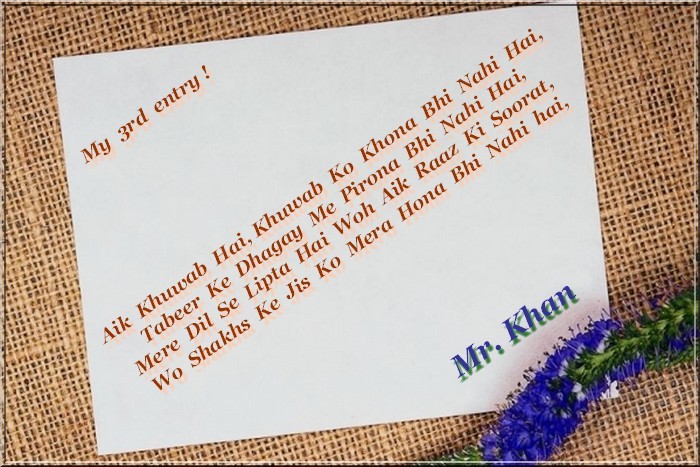 My 3rd entry !
Aik Khuwab Hai, Khuwab Ko Khona Bhi Nahi Hai,
Tabeer Ke Dhagay Me Pirona Bhi Nahi Hai,
Mere Dil Se Lipta Hai Woh Aik Raaz Ki Soorat,
Wo Shakhs Ke Jis Ko Mera Hona Bhi Nahi hai,
Mr. Khan